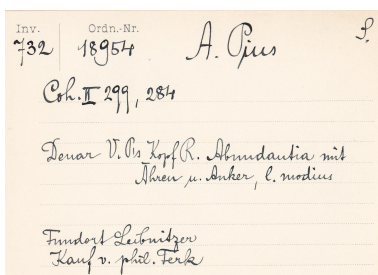 Inv. Ordn.-Nr.
732 18954 A. Pius S.
Coh. II 299, 284
Denar V. Bs Kopf R. Abundantia mit
Ähren u. Anker, l. modius
Fundort Leibnitzer
Kauf v. phil. Ferk